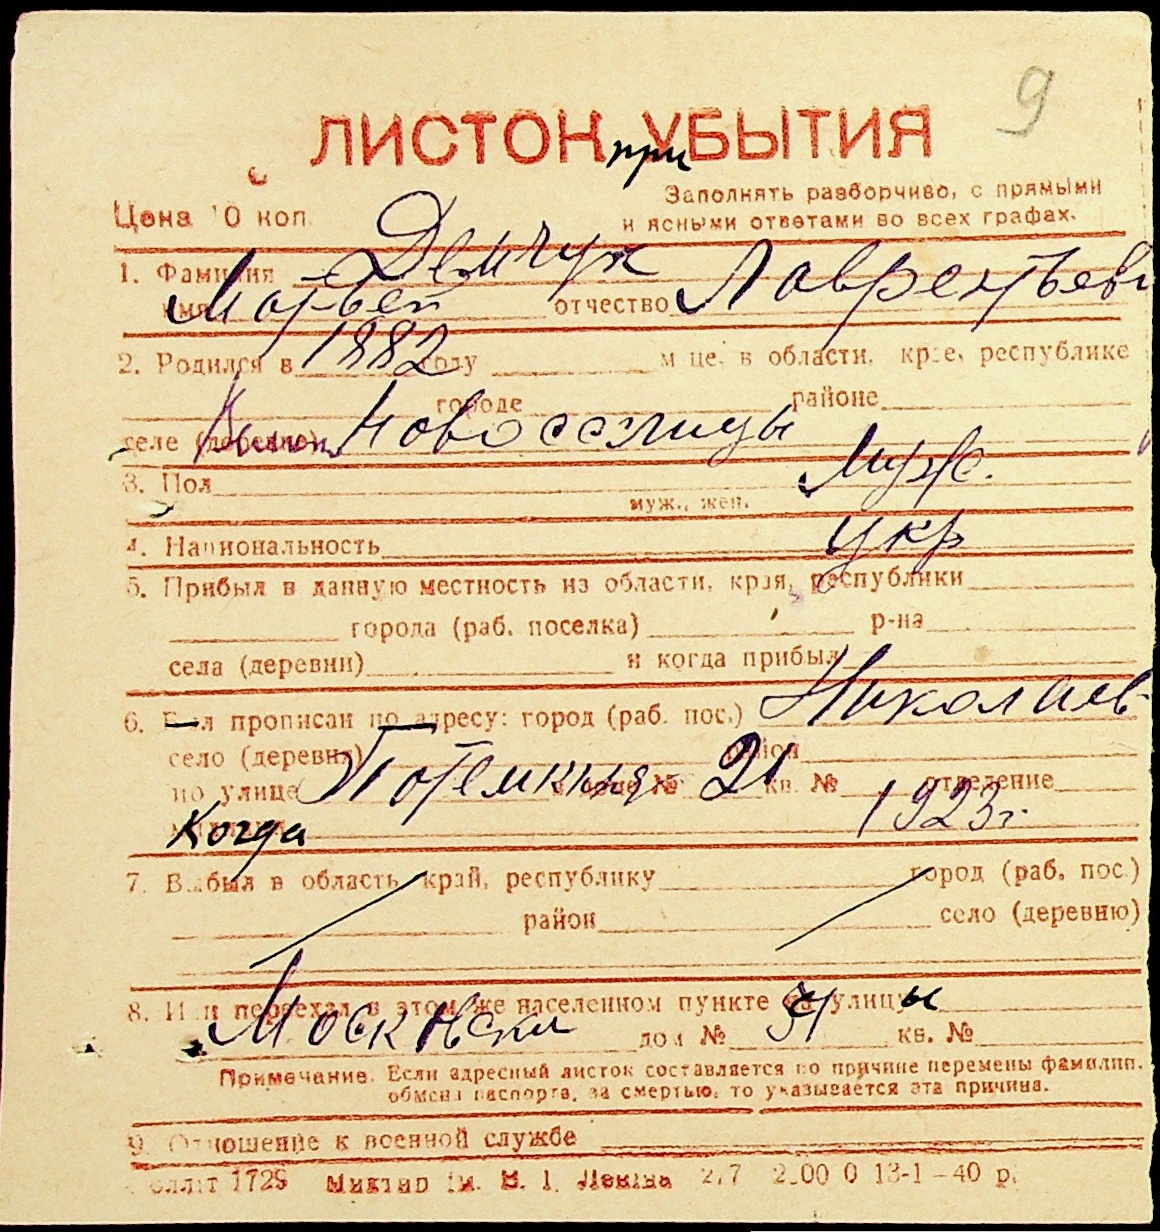 9
ЛИСТОК при УБЫТИЯ
Цена 10 коп.
Заполнять разборчиво, с прямыми
и ясными ответами во всех графах.
1. Фамилия Демчук
имя Матвей отчество Лаврентьеви
2. Родился в 1882 году м-це, в области, крае, республике
городе районе
селе (деревне) Новоселицы
3. Пол Муж.
муж., жен.
4. Национальность укр
5. Прибыл в данную местность из области, края, республики
города (раб. поселка) р-на
села (деревни) и когда прибыл
6. Был прописан по адресу: город (раб. пос.) Николаев
село (деревня) район
по улице Потемкинск. № 21 кв. № отделение
Когда 1923 г.
7. Выбыл в область, край, республику город (раб. пос.)
район село (деревню)
8. Или переехал в этом же населенном пункте на улицы
Московская дом № 51 кв. №
Примечание. Если адресный листок составляется по причине перемены фамилии,
обмена паспорта, за смертью, то указывается эта причина.
9. Отношение к военной службе
1729 Ленина 13-1-40 р.